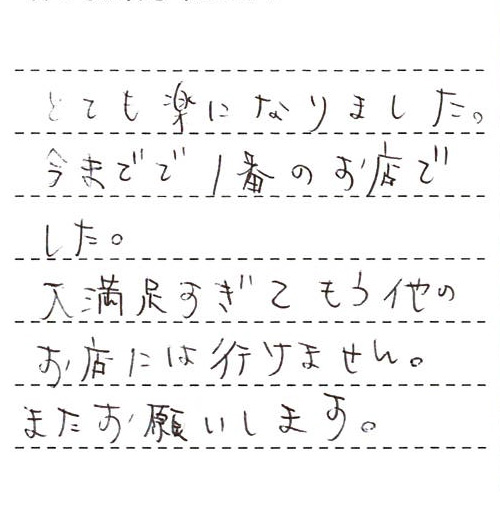 とても楽になりました。
今までで1番のお店で
した。
大満足すぎてもう他の
お店には行けません。
またお願いします。